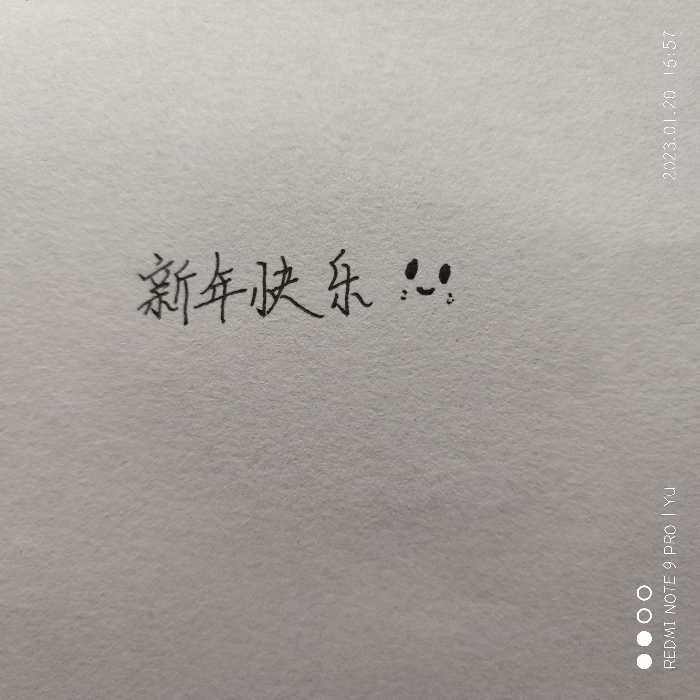 新年快乐
2023.01.20 16:57
REDMI NOTE 9 PRO | Yu